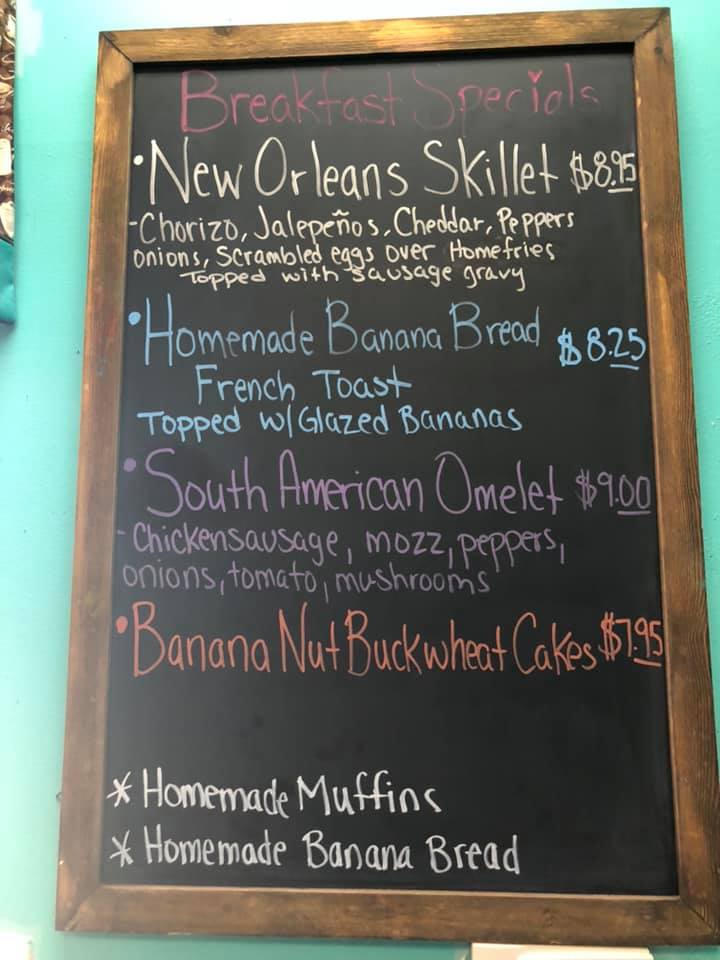 Breakfast Specials
• New Orleans Skillet $8.95
- Chorizo, Jalepeños, Cheddar, Peppers
onions, Scrambled eggs over Homefries
Topped with sausage gravy
• Homemade Banana Bread $8.25
French Toast
Topped w/ Glazed Bananas
• South American Omelet $9.00
- Chickensausage, mozz, peppers,
onions, tomato, mushrooms
• Banana Nut Buckwheat Cakes $7.95
* Homemade Muffins
* Homemade Banana Bread